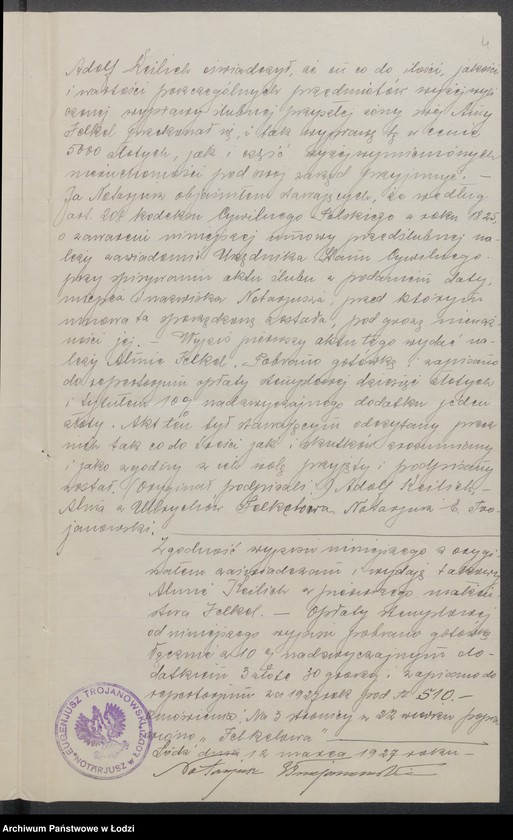 4
Adolf Keilich oświadczył, że on co do ilości, jakości
i wartości poszczególnych przedmiotów wyżej wyli
czonej wyprawy ślubnej przyszłej żony swej Almy
Felkel przekonał się, i tak wyprawę tę w cenie
5000 złotych, jak i część wyżej wymienionych
nieruchomości pod swój zarząd przyjmuje. —
Ja Notarjusz objaśniłem stawających, że według
art. 208 Kodeksu Cywilnego Polskiego z roku 1825,
o zawarciu niniejszej umowy przedślubnej na-
leży zawiadomić Urzędnika Stanu Cywilnego
przy spisywaniu aktu ślubu z podaniem daty,
miejsca i nazwiska Notarjusza, przed którym
umowa ta sporządzoną została, pod grozą nieważ-
ności jej. — Wypis pierwszy aktu tego wydać na-
leży Almie Felkel. Pobrano gotówką i zapisano
do repertorjum opłaty stemplowej dziesięć złotych
i tytułem 10% nadzwyczajnego dodatku jeden
złoty. Akt ten był stawającym odczytany przez
nich tak co do treści jak i skutków zrozumiany
i jako zgodny z ich wolą przyjęty i podpisany
został. Oryginał podpisali: Adolf Keilich,
Alma z Ulbrychów Felkelowa, Notarjusz E. Tro-
janowski.
Zgodność wypisu niniejszego z orygi
nałem zaświadczam i wydaję takowy
Almie Keilich z pierwszego małżeń
stwa Felkel. — Opłaty stemplowej
od niniejszego wypisu pobrano gotówką
łącznie z 10% nadzwyczajnym do-
datkiem 3 złote 30 groszy i zapisano do
repertorjum za 1927 rok pod № 510. —
Na 3 stronicy w 22 wierszu popra
wiono „Felkelowa"
Łódź dnia 12 marca 1927 roku —
Notarjusz Trojanowski
EUGENJUSZ TROJANOWSKI
NOTARJUSZ w ŁODZI
Archiwum Państwowe w Łodzi